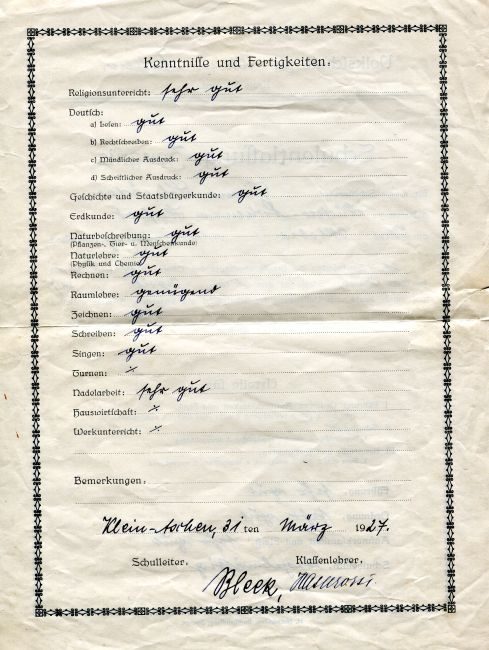 Kenntnisse und Fertigkeiten:
Religionsunterricht: sehr gut
Deutsch:
a) Lesen: gut
b) Rechtschreiben: gut
c) Mündlicher Ausdruck: gut
d) Schriftlicher Ausdruck: gut
Geschichte und Staatsbürgerkunde: gut
Erdkunde: gut
Naturbeschreibung: gut
(Pflanzen-, Tier- u. Menschenkunde)
Naturlehre: gut
(Physik und Chemie)
Rechnen: gut
Raumlehre: genügend
Zeichnen: gut
Schreiben: gut
Singen: gut
Turnen: ×
Nadelarbeit: sehr gut
Hauswirtschaft: ×
Werkunterricht: ×
Bemerkungen:
Klein-Aschen, 31 ten März 1927.
Schulleiter. Klassenlehrer.
Bleek,